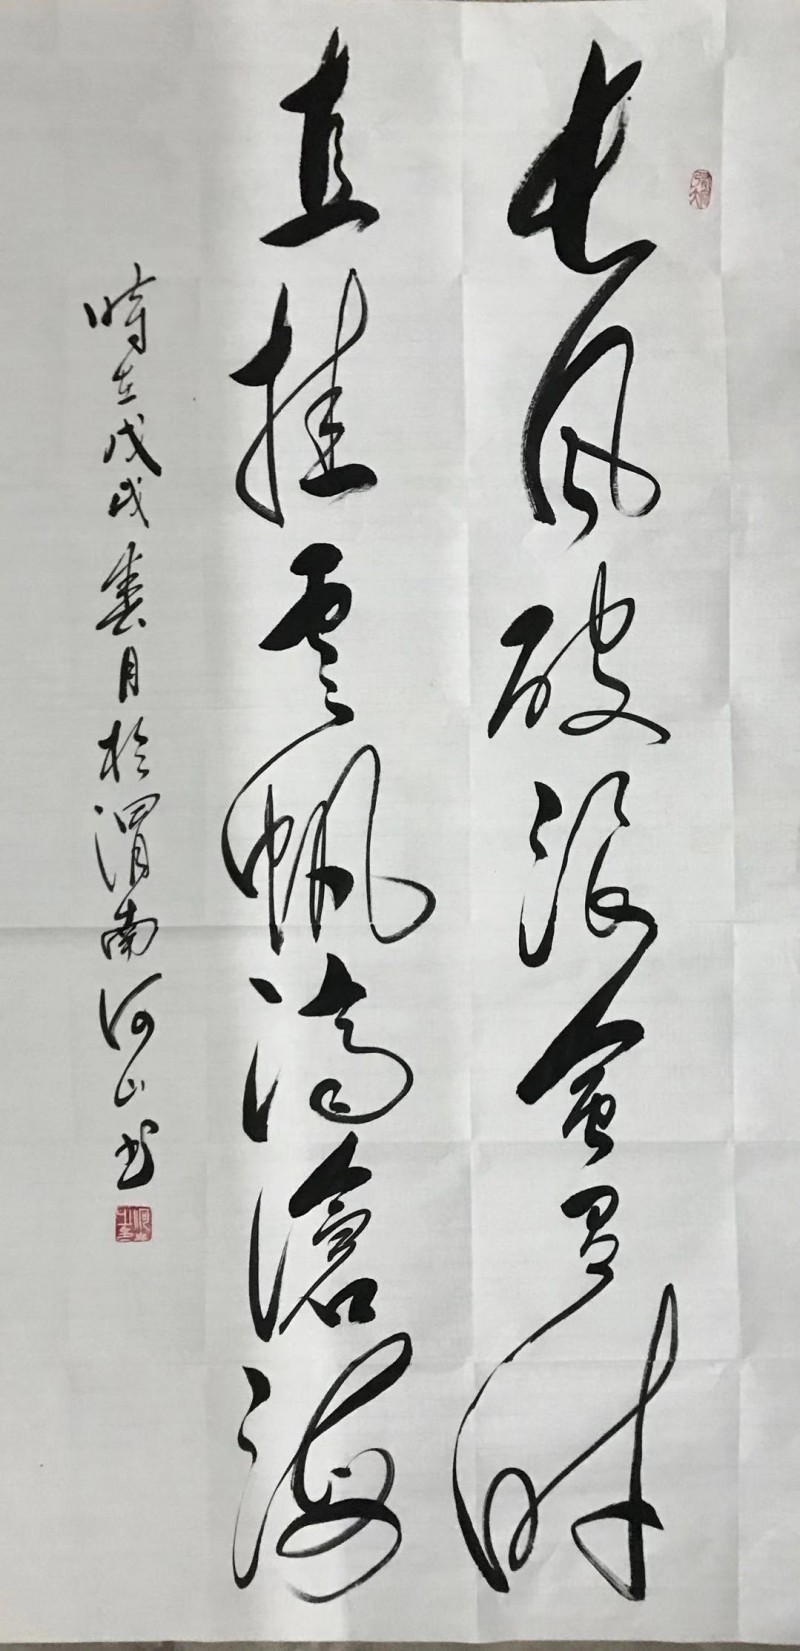 长风破浪会有时
直挂云帆济沧海
時在戊戌春月於渭南河山书